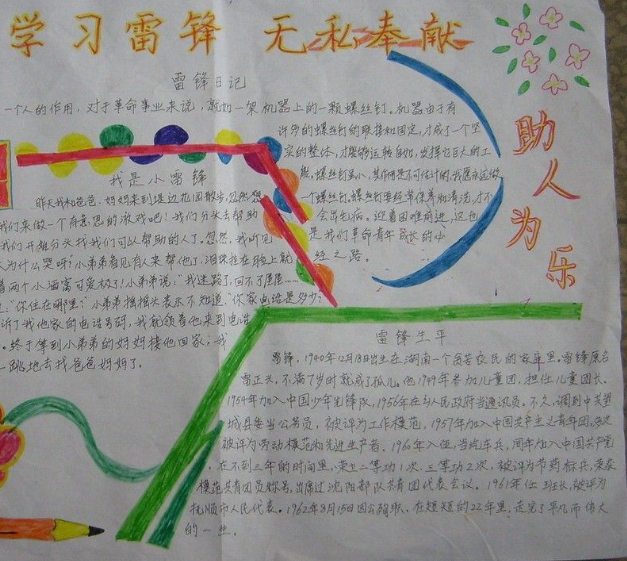 学习雷锋 无私奉献
助人为乐
雷锋日记
一个人的作用，对于革命事业来说，就如一架机器上的一颗螺丝钉。机器由于有
许多的螺丝钉的联接和固定，才成了一个坚
实的整体，才能够运转自如，发挥它巨大的工
能，螺丝钉虽小，其作用是不可估计的我愿永远做
一个螺丝钉。螺丝钉要经常保养和清洗，才不
会出毛病。迎着困难前进，这也
是我们革命青年成长的必
经之路。
我是小雷锋
昨天我和爸爸、妈妈来到堤边花园散步，忽然想
我们来做一个有意思的游戏吧！我们分头去帮助
我们开始分头找我们可以帮助的人了。忽然，我听见
人为什么哭呀？小弟弟看见有人来帮他了，泪珠挂在脸上就
着两个小酒窝可爱极了！小弟弟说：“我迷路了，回不了家
“你住在哪里”小弟弟摇摇头表示不知道。“你家电话是多少？
诉了我他家的电话号码，我就领着他来到电话
。终于等到小弟弟的妈妈接他回家，我
一跳地去找爸爸妈妈了。
雷锋生平
雷锋，1940年12月18日出生在湖南一个贫苦农民的家庭里。雷锋原名
雷正兴，不满7岁时就成了孤儿。他1949年参加儿童团，担任儿童团长。
1954年加入中国少年先锋队，1956年在乡人民政府当通讯员。不久，调到中共望
城县委当公务员，被评为工作模范，1957年加入中国共产主义青年团。多次
被评为劳动模范和先进生产者。1960年入伍，当汽车兵，同年加入中国共产党
。在不到三年的时间里，荣立二等功1次，三等功2次，被评为节约标兵，荣获
模范共青团员称号，出席过沈阳部队共青团代表会议。1961年任班长，被评为
抚顺市人民代表。1962年8月15日因公殉职，在短短的22年里，走完了平凡而伟大
的一生。